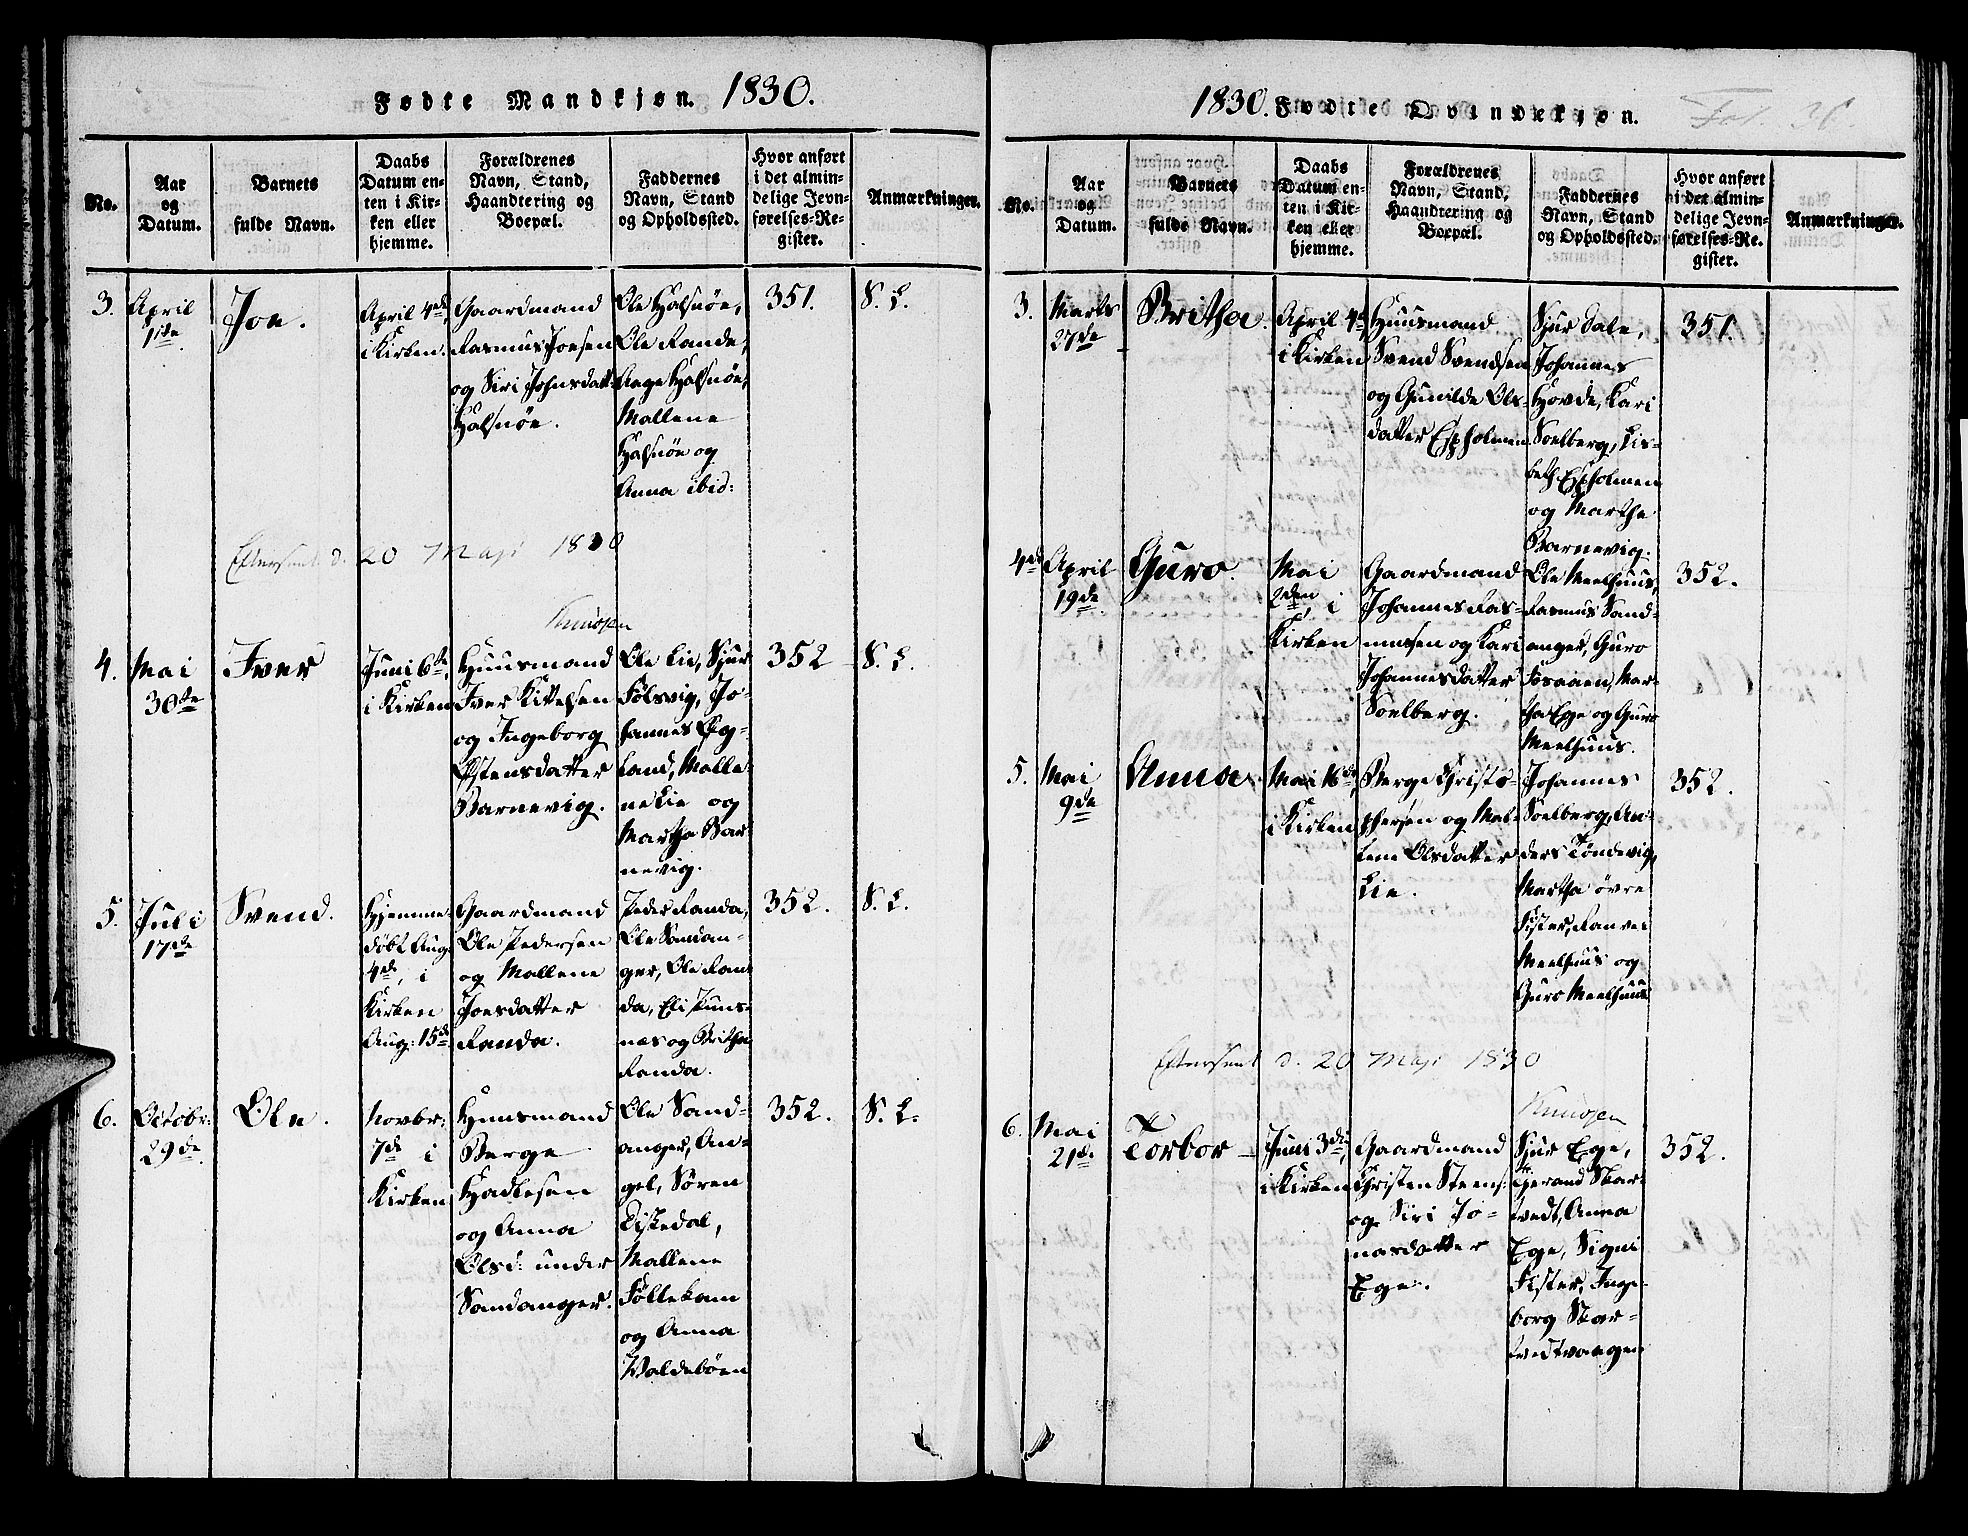 Fødte Mandkjøn. 1830.
No.
Aar
og
Datum.
Barnets
fulde Navn.
Daabs
Datum en-
ten i Kir-
ken eller
hjemme.
Forældrenes
Navn, Stand,
Haandtering og
Boepæl.
Faddernes
Navn, Stand
og Opholdssted.
Hvor anført
i det almin-
delige Jevn-
førelses-Re-
gister.
Anmærkninger.
3.
April
1ste
Jon.
April 4de,
i Kirken.
Gaardmand
Rasmus Joesen
og Siri Johnsdatt:
Halsnøe.
Ole Halsnøe,
Ole Rande,
Aage Halsnøe,
Mallene
Halsnøe og
Anna ibid:
351.
S. L.
Efterseet d. 20 Maji 1830
Knudsen
4.
Mai
30te
Iver
Juni 6te,
i Kirken
Huusmand
Iver Kittelsen
og Ingeborg
Østensdatter
Barnevig.
Ole Lie, Sjur
Følsvig, Jo-
hannes Øg-
land, Malle-
ne Lie og
Martha Bar-
nevig.
352
S. L.
5.
Juli
17de
Svend.
Hjemme-
døbt Aug:
4de, i
Kirken
Aug: 15de
Gaardmand
Ole Pedersen
og Mallene
Joesdatter
Randa.
Peder Randa,
Ole Sandan-
ger, Ole Ran-
da, Eli Puns-
nes og Britha
Randa.
352.
S. L.
6.
Octobr:
29de
Ole.
Novbr:
7de i
Kirken
Huusmand
Berge
Hadlesen
og Anna
Olsd: under
Sandanger.
Ole Sand-
anger, An-
gel, Søren
Liskedal,
Mallene
Følleham
og Anna
Valdebøen
352.
S. L.
1830. Fødte Qvindekjøn. Fol. 30.
No.
Aar
og
Datum.
Barnets
fulde Navn.
Daabs
Datum en-
ten i Kir-
ken eller
hjemme.
Forældrenes
Navn, Stand,
Haandtering og
Boepæl.
Faddernes
Navn, Stand
og Opholdssted.
Hvor anført
i det almin-
delige Jevn-
førelses-Re-
gister.
Anmærkninger.
3.
Marts
27de
Britha.
April 4de,
i Kirken
Huusmand
Svend Svendsen
og Gunilde Ols-
datter Espholmen.
Sjur Dale,
Johannes
Hovde, Kari
Soelberg, Lis-
beth Espholmen
og Martha
Barnevig.
351.
4de
April
19de
Guro.
Mai
2den, i
Kirken
Gaardmand
Johannes Ras-
mussen og Kari
Johannesdatter
Soelberg.
Ole Meelhuus,
Rasmus Sand-
anger, Guro
Fosaaen, Mar-
tha Ege og Guro
Meelhuus.
352.
5.
Mai
9de
Anna.
Mai 16de,
i Kirken
Berge Christo-
phersen og Mal-
lene Olsdatter
Lie.
Johannes
Soelberg, An-
ders Tøndevig,
Martha øvre
Fister, Ranvei
Meelhuus og
Guro Meelhuus
352.
Efterseet d. 20 Maji 1830
Knudsen
6.
Mai
21de
Torbor
Juni 3de,
i Kirken
Gaardmand
Christen Steens:
og Siri Jo-
nasdatter
Ege.
Sjur Ege,
Tjerand Skar-
tvedt, Anna
Ege, Signi
Fister, Inge-
borg Skar-
tvedtvaagen
352.